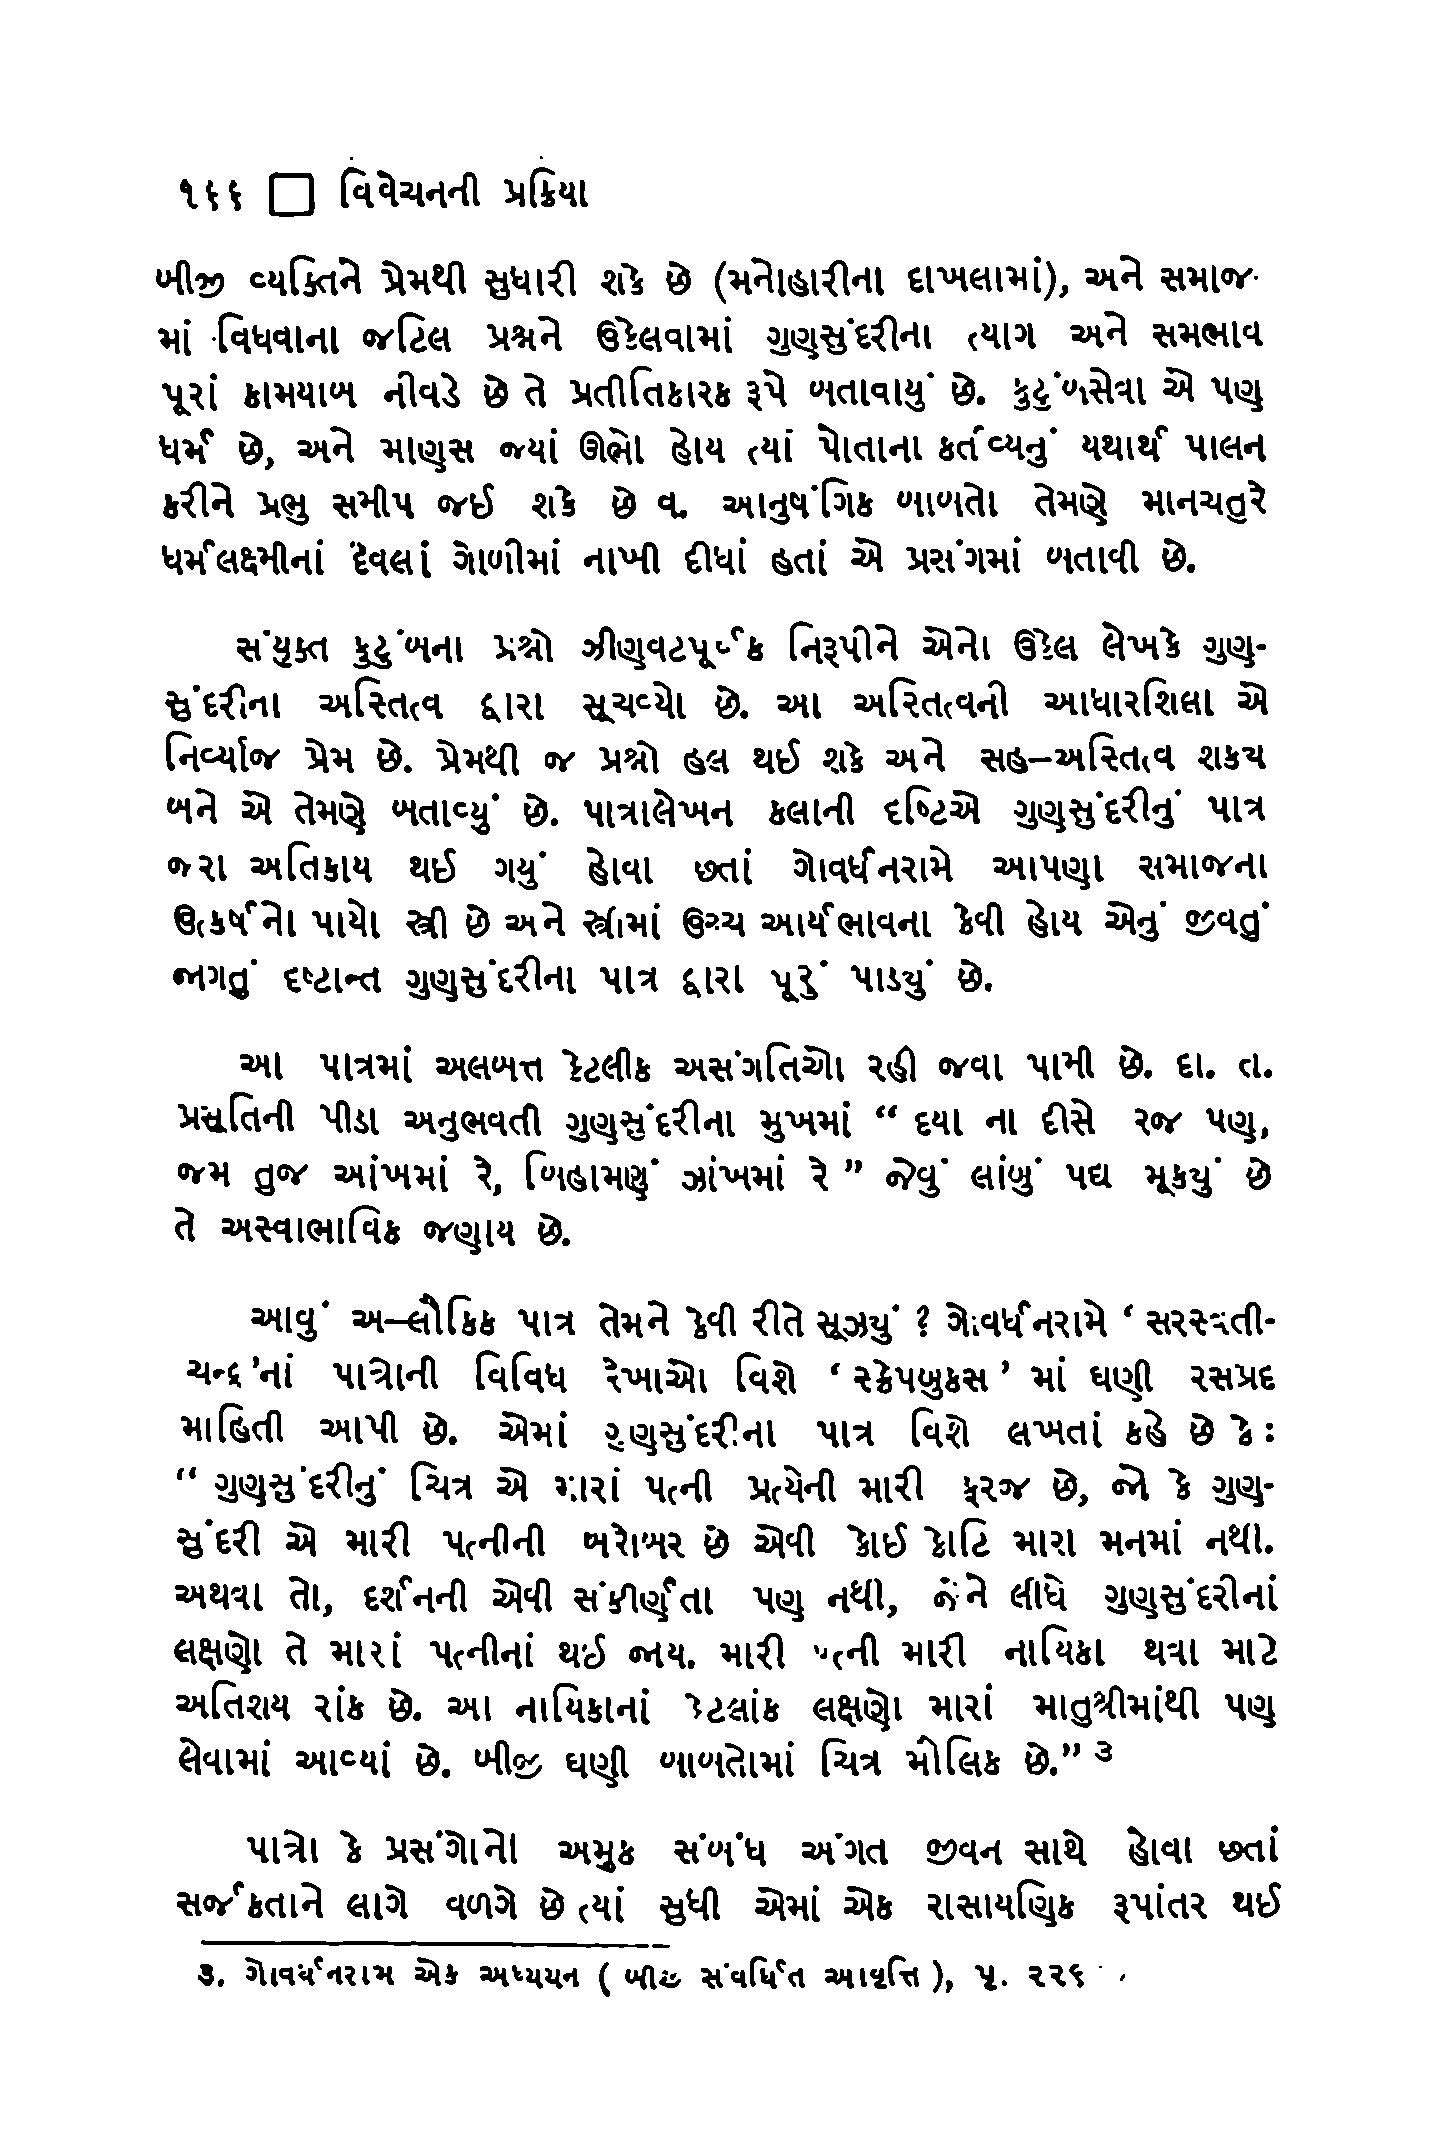 ૧૬૬ □ વિવેચનની પ્રક્રિયા
બીજી વ્યક્તિને પ્રેમથી સુધારી શકે છે (મનોહારીના દાખલામાં), અને સમાજ-
માં વિધવાના જટિલ પ્રશ્નને ઉકેલવામાં ગુણસુંદરીના ત્યાગ અને સમભાવ
પૂરાં કામયાબ નીવડે છે તે પ્રતીતિકારક રૂપે બતાવાયું છે. કુટુંબસેવા એ પણ
ધર્મ છે, અને માણસ જ્યાં ઊભો હોય ત્યાં પોતાના કર્તવ્યનું યથાર્થ પાલન
કરીને પ્રભુ સમીપ જઈ શકે છે વ. આનુષંગિક બાબતો તેમણે માનચતુરે
ધર્મલક્ષ્મીનાં દેવલાં ગોળીમાં નાખી દીધાં હતાં એ પ્રસંગમાં બતાવી છે.
સંયુક્ત કુટુંબના પ્રશ્નો ઝીણવટપૂર્વક નિરૂપીને એનો ઉકેલ લેખકે ગુણ-
સુંદરીના અસ્તિત્વ દ્વારા સૂચવ્યો છે. આ અસ્તિત્વની આધારશિલા એ
નિર્વ્યાજ પ્રેમ છે. પ્રેમથી જ પ્રશ્નો હલ થઈ શકે અને સહ–અસ્તિત્વ શક્ય
બને એ તેમણે બતાવ્યું છે. પાત્રાલેખન કલાની દૃષ્ટિએ ગુણસુંદરીનું પાત્ર
જરા અતિકાય થઈ ગયું હોવા છતાં ગોવર્ધનરામે આપણા સમાજના
ઉત્કર્ષનો પાયો સ્ત્રી છે અને સ્ત્રીમાં ઉચ્ચ આર્યભાવના કેવી હોય એનું જીવતું
જાગતું દૃષ્ટાન્ત ગુણસુંદરીના પાત્ર દ્વારા પૂરું પાડ્યું છે.
આ પાત્રમાં અલબત્ત કેટલીક અસંગતિઓ રહી જવા પામી છે. દા. ત.
પ્રસૂતિની પીડા અનુભવતી ગુણસુંદરીના મુખમાં “ દયા ના દીસે રજ પણ,
જમ તુજ આંખમાં રે, બિહામણું ઝાંખમાં રે ” જેવું લાંબું પદ્ય મૂક્યું છે
તે અસ્વાભાવિક જણાય છે.
આવું અ–લૌકિક પાત્ર તેમને કેવી રીતે સૂઝ્યું ? ગોવર્ધનરામે ‘ સરસ્વતી-
ચન્દ્ર ’નાં પાત્રોની વિવિધ રેખાઓ વિશે ‘ સ્ક્રેપબુક્સ ’ માં ઘણી રસપ્રદ
માહિતી આપી છે. એમાં ગુણસુંદરીના પાત્ર વિશે લખતાં કહે છે કે :
“ ગુણસુંદરીનું ચિત્ર એ મારાં પત્ની પ્રત્યેની મારી ફરજ છે, જો કે ગુણ-
સુંદરી એ મારી પત્નીની બરોબર છે એવી કોઈ કોટિ મારા મનમાં નથી.
અથવા તો, દર્શનની એવી સંકીર્ણતા પણ નથી, જેને લીધે ગુણસુંદરીનાં
લક્ષણો તે મારાં પત્નીનાં થઈ જાય. મારી પત્ની મારી નાયિકા થવા માટે
અતિશય રાંક છે. આ નાયિકાનાં કેટલાંક લક્ષણો મારાં માતુશ્રીમાંથી પણ
લેવામાં આવ્યાં છે. બીજી ઘણી બાબતોમાં ચિત્ર મૌલિક છે.” ૩
પાત્રો કે પ્રસંગોનો અમુક સંબંધ અંગત જીવન સાથે હોવા છતાં
સર્જકતાને લાગે વળગે છે ત્યાં સુધી એમાં એક રાસાયણિક રૂપાંતર થઈ
૩. ગોવર્ધનરામ એક અધ્યયન ( બીજી સંવર્ધિત આવૃત્તિ ), પૃ. ૨૨૬